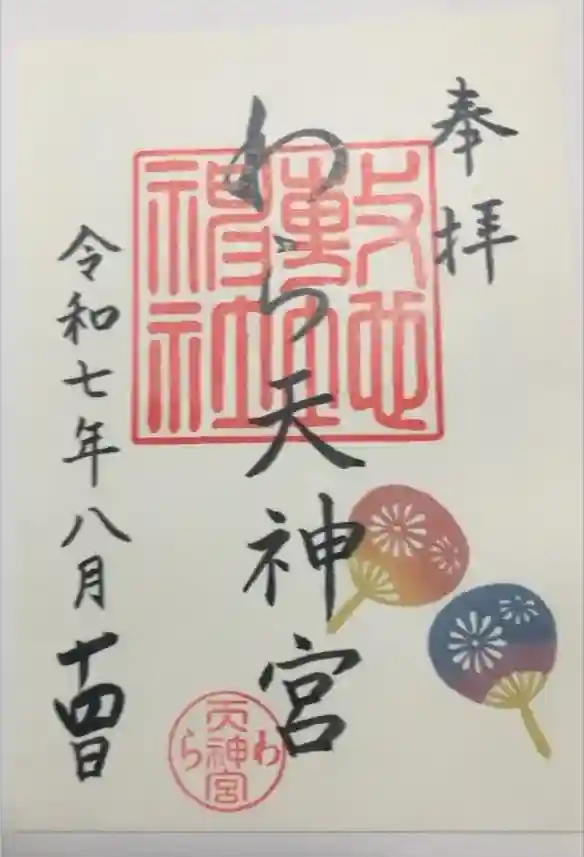 奉拝
わら天神宮
令和七年八月十四日
敷地神社
わら天神宮